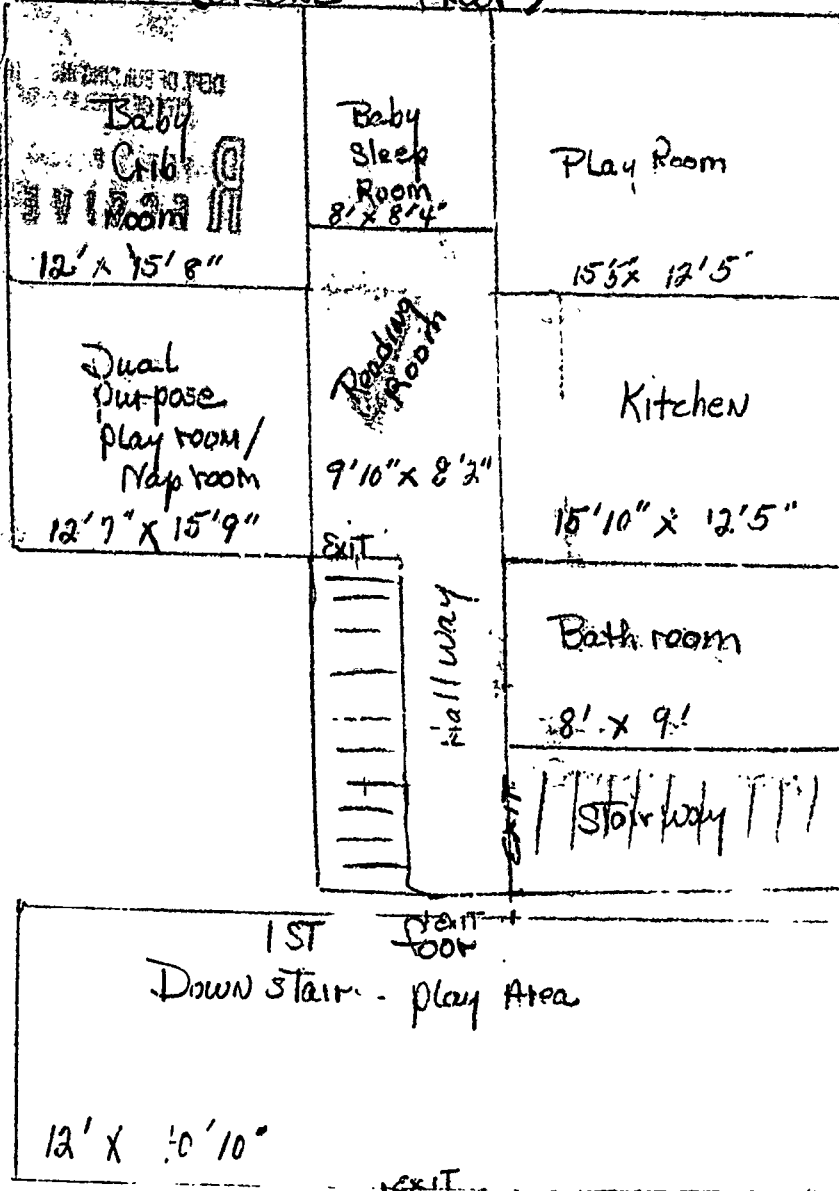 Baby
Crib
Room
12' x 15'8"
Baby
Sleep
Room
8' x 8'4"
Play Room
15'5 x 12'5"
Dual
Purpose
Play room/
Nap room
12'7" x 15'9"
Reading
Room
9'10" x 8'2"
Kitchen
15'10" x 12'5"
Exit
Hallway
Bathroom
8' x 9'
Exit
Stairway
1ST floor
Exit
Down stair - play Area
12' x
Exit